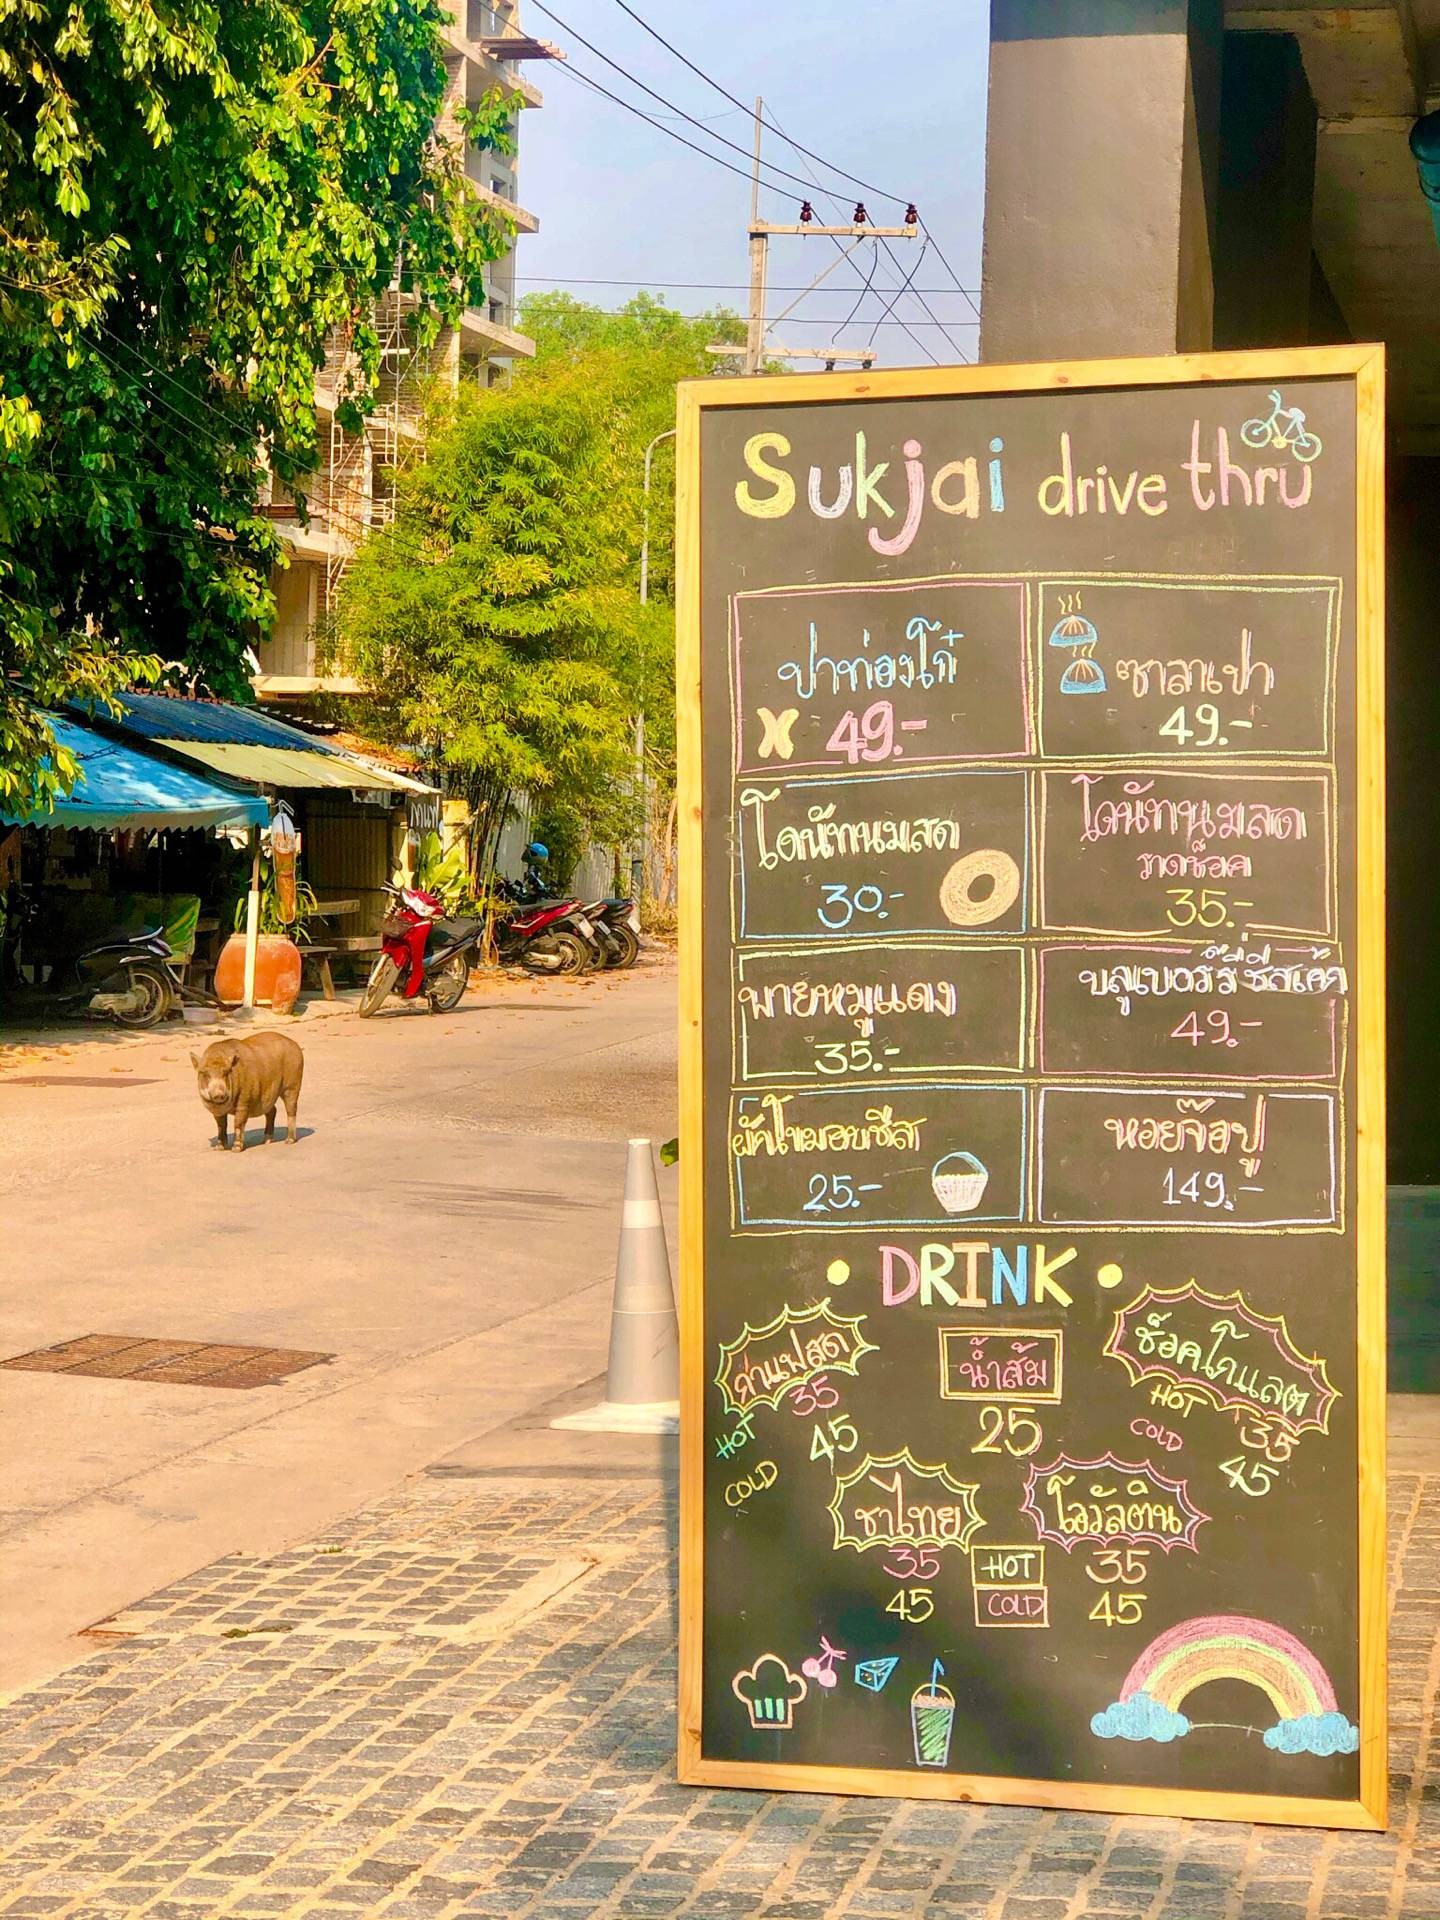 Sukjai drive thru
ปาท่องโก๋
49.-
ซาลาเปา
49.-
โดนัทนมสด
30.-
โดนัทนมสด
ราดช็อค
35.-
พายหมูแดง
35.-
บลูเบอร์รี่ชีสเค้ก
49.-
ผักโขมอบชีส
25.-
หอยจ๊อปู
149.-
• DRINK •
กาแฟสด
35
HOT
45
COLD
น้ำส้ม
25
ช็อคโกแลต
HOT
35
COLD
45
ชาไทย
35
45
HOT
COLD
โอวัลติน
35
45